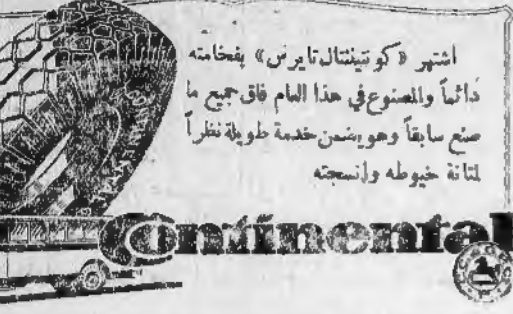 اشتهر «كونتيننتال تايرس» بفخامته
دائماً والمصنوع في هذا العام فاق جميع ما
صنع سابقاً وهو يضمن خدمة طويلة نظراً
لمتانة خيوطه وانسجته
Continental